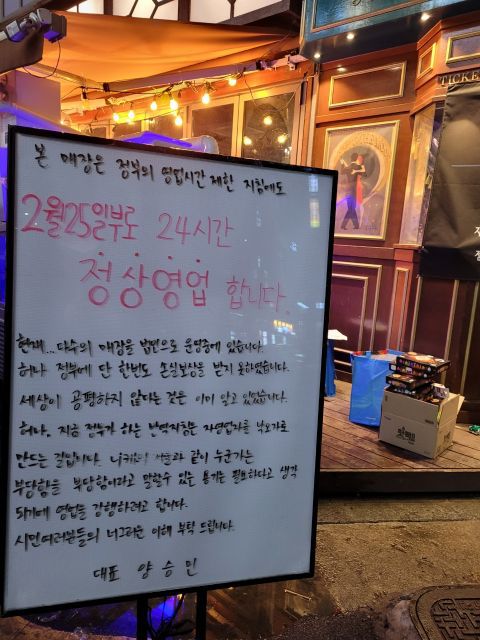 본 매장은 정부의 영업시간 제한 지침에도
2월25일부로 24시간
정상영업 합니다.
현재...다수의 매장을 법인으로 운영중에 있습니다.
허나 정부에 단 한번도 손실보상을 받지 못하였습니다.
세상이 공평하지 않다는 것은 이미 알고 있었습니다.
허나, 지금 정부가 하는 방역지침은 자영업자를 낙오자로
만드는 길입니다. 같이 누군가는
부당함을 부당함이라고 말할수 있는 용기는 필요하다고 생각
되기에 영업을 강행하려고 합니다.
시민여러분들의 너그러운 이해 부탁 드립니다.
대표 양승민
TICKE